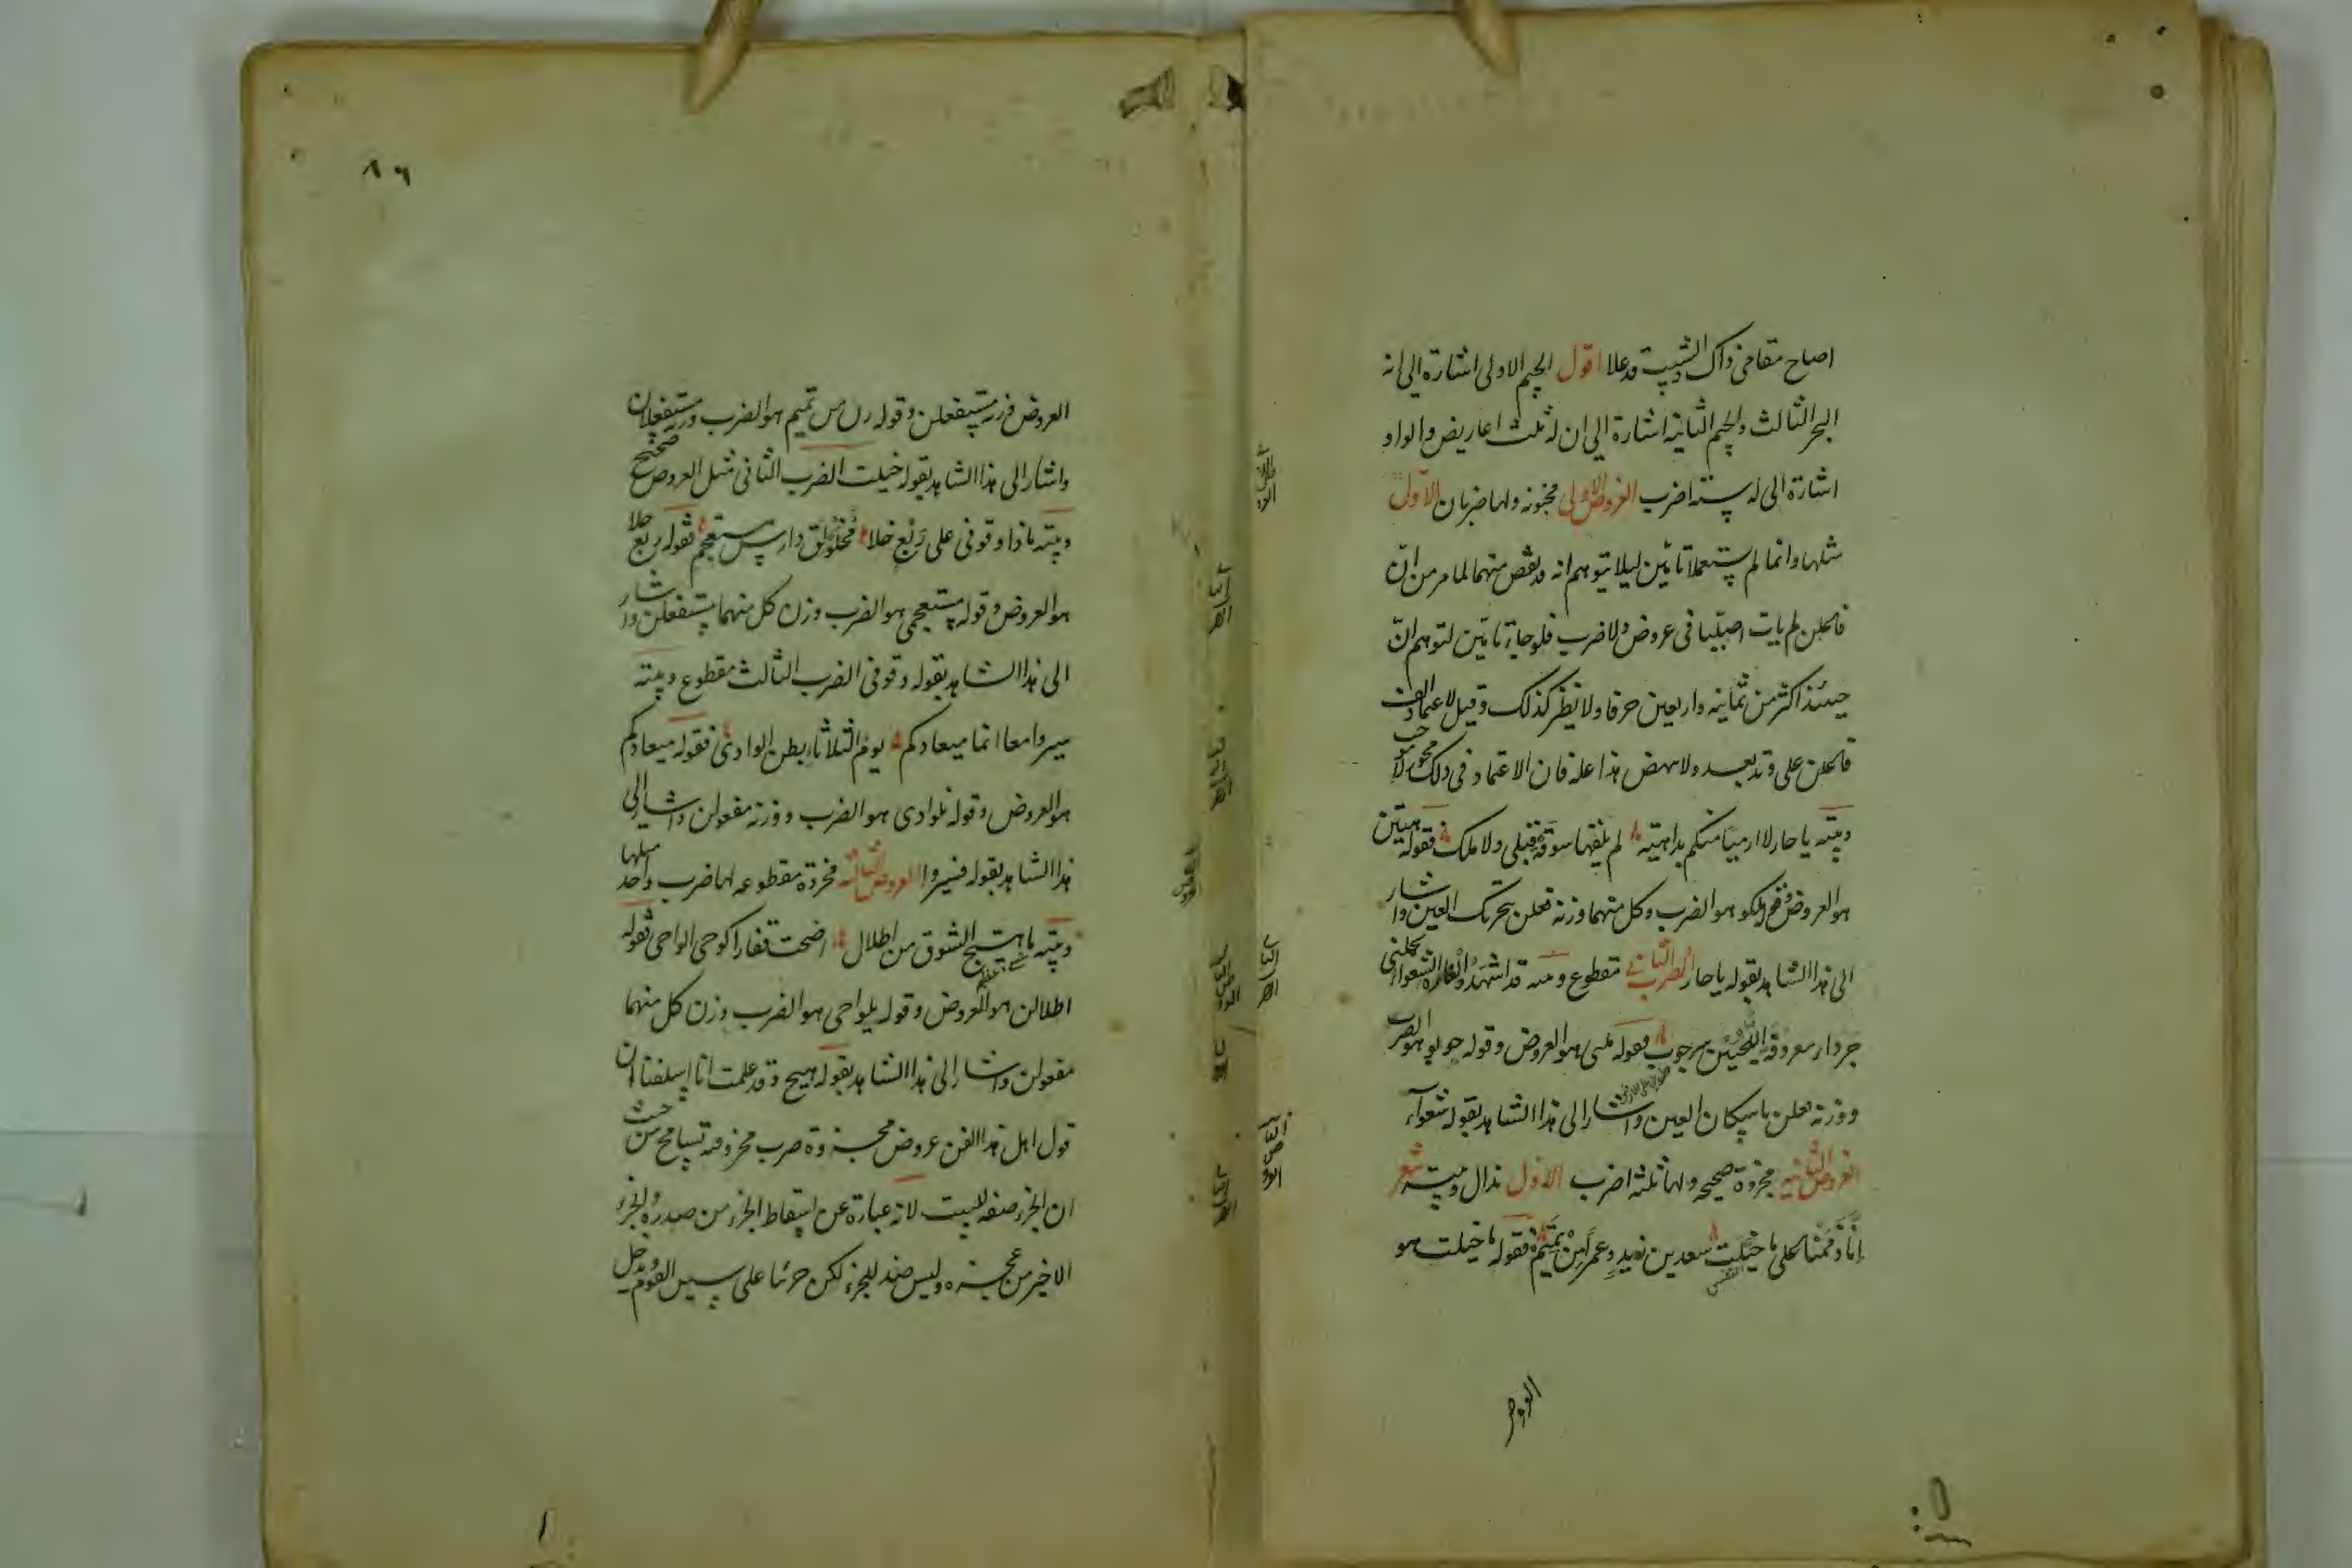 اصاح مقامى ذاك الشيب قد علا اقول الجيم الاولى اشارة الى انه
البحر الثالث والجيم الثانية اشارة الى ان له ثلث اعاريض والواو
اشارة الى له ستة اضرب العروض الاولى مخبونه ولها ضربان الاول
مثلها وانما لم يستعملا تامّين ليلا يتوهم انه قد نقص منهما لما مر من انّ
فاعلن لم يات اصليا فى عروض ولا ضرب فلو جاءا تامّين لتوهم انّ
حينئذ اكثر من ثمانية واربعين حرفا ولا نظير كذلك وقيل لاعتماد الف
فاعلن على وتد بعد ولا ينهض هذا علة فان الاعتماد فى ذلك مجوز لا موجب
وبيته يا حار لا ارمينا منكم بداهية لم يلقها سوقة قبلى ولا ملك فقوله هيتن
هو العروض وقوله ملكو هو الضرب وكل منهما وزنه فعلن بتحريك العين واشار
الى هذا الشاهد بقوله يا حار الضرب الثانى مقطوع وبيته قد اشهد الغارة الشعواء تحملنى
جرداء معروقة اللحيين سرحوب فقوله ملنى هو العروض وقوله حوبو هو الضرب
ووزنه فعلن باسكان العين واشار الى هذا الشاهد بقوله شعواء
العروض الثانيه مجزوة صحيحه ولها ثلثة اضرب الاول مذال وبيته شعر
انّا ذممنا على ما خيلت سعد بن زيد وعمرا من تميم فقوله ما خيلت هو
العروض
٨٦
العروض وزنه مستفعلن وقوله رن من تميم هو الضرب وزنه مستفعلان
واشار الى هذا الشاهد بقوله خيلت الضرب الثانى مثل العروض صحيح
وبيته ماذا وقوفى على ربع خلا مخلولق دارس مستعجم فقوله ربع خلا
هو العروض وقوله مستعجمى هو الضرب وزن كل منهما مستفعلن واشار
الى هذا الشاهد بقوله وقوفى الضرب الثالث مقطوع وبيته
سيروا معا انما ميعادكم يوم الثلاثاء بطن الوادى فقوله ميعادكم
هو العروض وقوله نلوادى هو الضرب ووزنه مفعولن واشار الى
هذا الشاهد بقوله فسيروا العروض الثالثه مجزوة مقطوعه لها ضرب واحد مثلها
وبيته ما هيج الشوق من اطلال اضحت قفارا كوحى الواحى فقوله
اطلالن هو العروض وقوله يلواحى هو الضرب وزن كل منهما
مفعولن واشار الى هذا الشاهد بقوله هيج وقد علمت انا اسلفنا ان
قول اهل هذا الفن عروض مجزوة ضرب مجزو فيه تسامح من حيث
ان الجزء صفة للبيت لانه عبارة عن اسقاط الجزء من صدره والجزء
الاخير من عجزه وليس صفة للجزء لكن جرينا على سبيل القوم